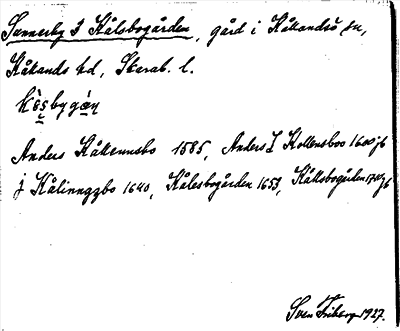 Sunnerby 3 Kålsbogården, gård i Kållandsö sn,
Kålands hd, Skarab. l.
Anders Kållennsbo 1585, Anders I Kollensboo 1600 jb
j Kålinngzbo 1640, Kålesbogården 1653, Kållsbogården jb
Sven Friberg 1927.